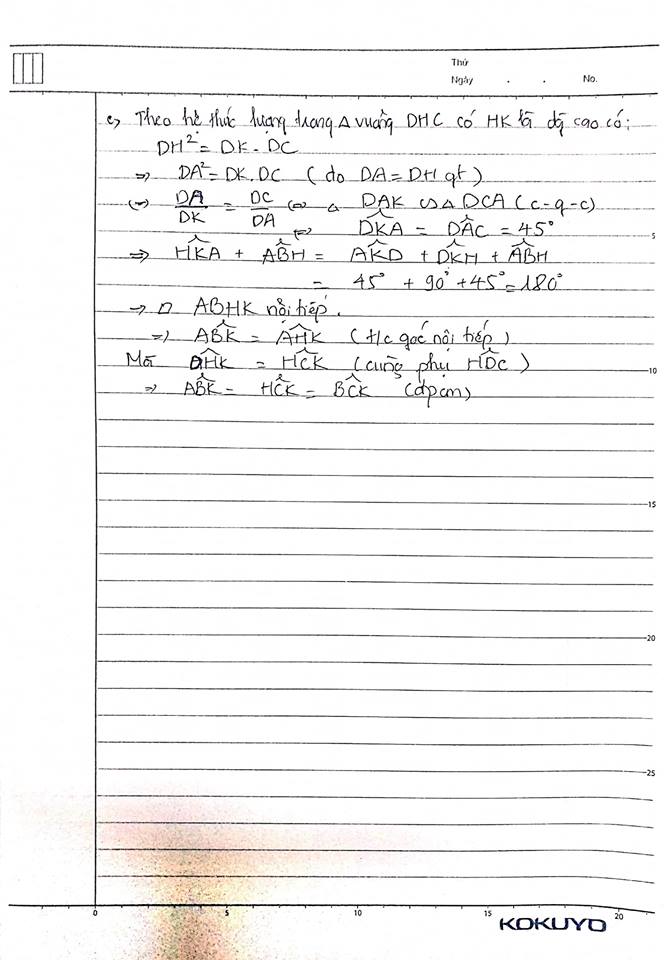 Thứ
Ngày . . No.
c, Theo hệ thức lượng trong Δ vuông DHC có HK là đg cao có:
DH² = DK . DC
=> DA² = DK.DC ( do DA = DH gt )
<=> DA/DK = DC/DA <=> Δ DAK ᔕ Δ DCA ( c-g-c )
<=> DKA = DAC = 45°
=> HKA + ABH = AKD + DKH + ABH
= 45° + 90° + 45° = 180°
-> □ ABHK nội tiếp.
=> ABK = AHK ( t/c góc nội tiếp )
Mà DHK = HCK ( cùng phụ HDC )
=> ABK = HCK = BCK (đpcm)
5
10
15
20
25
0 5 10 15 20
KOKUYO